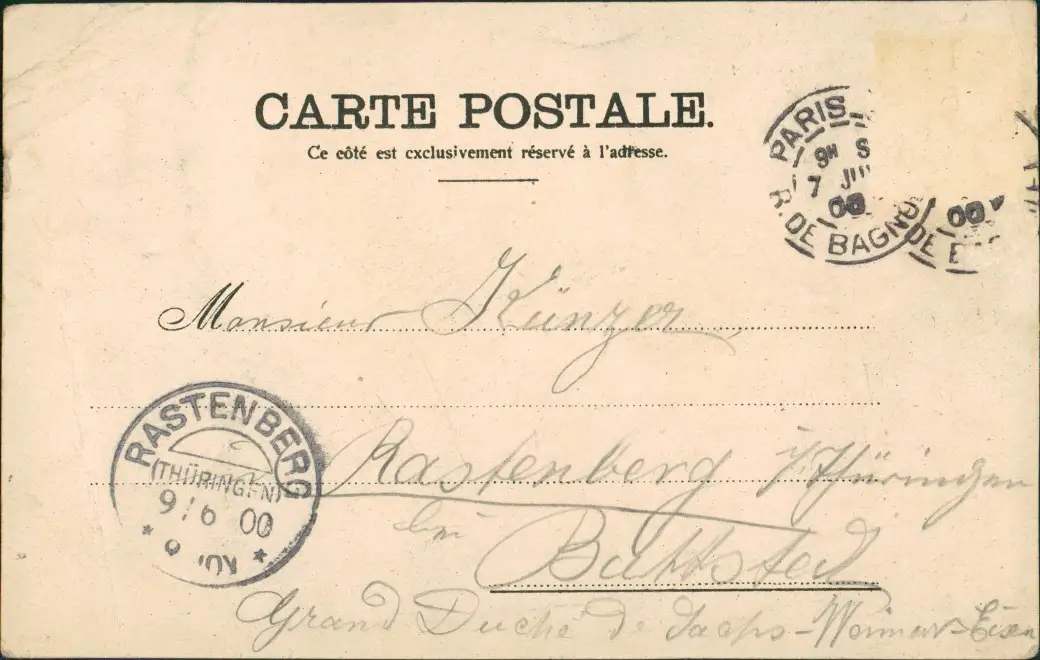 CARTE POSTALE.
Ce côté est exclusivement réservé à l'adresse.
PARIS
9H S
7 JUI
00
R. DE BAGNO
00
DE B
Monsieur Künzer
Rastenberg i/Thüringen
bei
Buttsted
Grand Duché de Sachs-Weimar-Eisen
RASTENBERG
(THÜRINGEN)
9/6 00